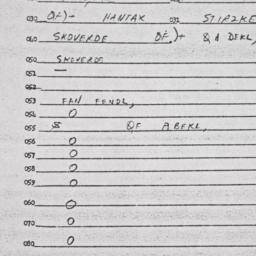 030 OF)- HANTAK 031 STIPZKE
040 SKOVERDE OF.)+ & A DEKL,
050 SKOVERDE
051 —
052
053 FAN FENDL,
054 O
055 & OF ABEKL,
056 O
057 O
058 O
059 O
060 O
070 O
080 O